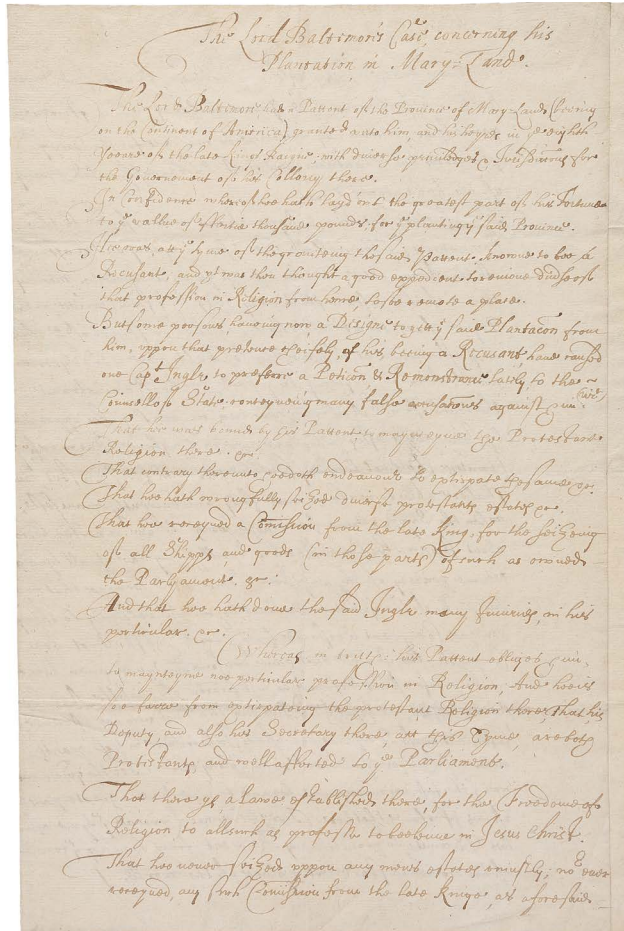 The Lord Baltemor's Case, concerning his
Plantation in Mary=Land.
The Lord Baltemore had a Pattent of the Province of Mary-Land (beeing
on the Continent of America) granted unto him, and his heyres in ye eighth
Yeare of the late Kings Raigne with diverse priviledges & Jurisdictions for
the Governement of his Collony there.
In Confidence whereof hee hath layd out the greatest part of his Fortune
to ye vallue of thousand pounds for ye planting ye said Province.
Hee was att ye tyme of the granteing the said Pattent, knowne to bee a
Recusant, and yt was then thought a good expedient to remove
that profession in Religion from hence, to soe remote a place.
But some persons haveing now a Designe to gett ye said Plantacon from
him, uppon that pretence of his beeing a Recusant, have caused
one Capt Ingle to preferre a Peticon & Remonstrance lately to the
Councell of State conteyneing many false accusations against him
That hee was bound by his Pattent to mayneteyne the Protestant
Religion there. &c.
That contrary thereunto hee doth endeavour to extirpate the same &c.
That hee hath wrongfully seized diverse protestants estates &c.
That hee receyved a Comission from the late King, for the seizeing
of all Shipps and goods (in those parts) of such as owned
the Parlyament. &c.
And that hee hath done the said Ingle many Injuries, in his
perticular. &c.
Whereas in truth: his Pattent obliges him
to maynteyne noe perticular profession in Religion, And hee is
soe farre from extirpateing the protestant Religion there, That his
Deputy and also his Secretary there, att this Tyme, are both
Protistants and well affected to ye Parliament.
That there ys a Lawe established there, for the Freedome of
Religion to all such as professe to beeleeve in Jesus Christ.
That hee never seized uppon any mens estates uniustly; nor ever
receyved, any such Comission from the late Kinge, as aforesaid